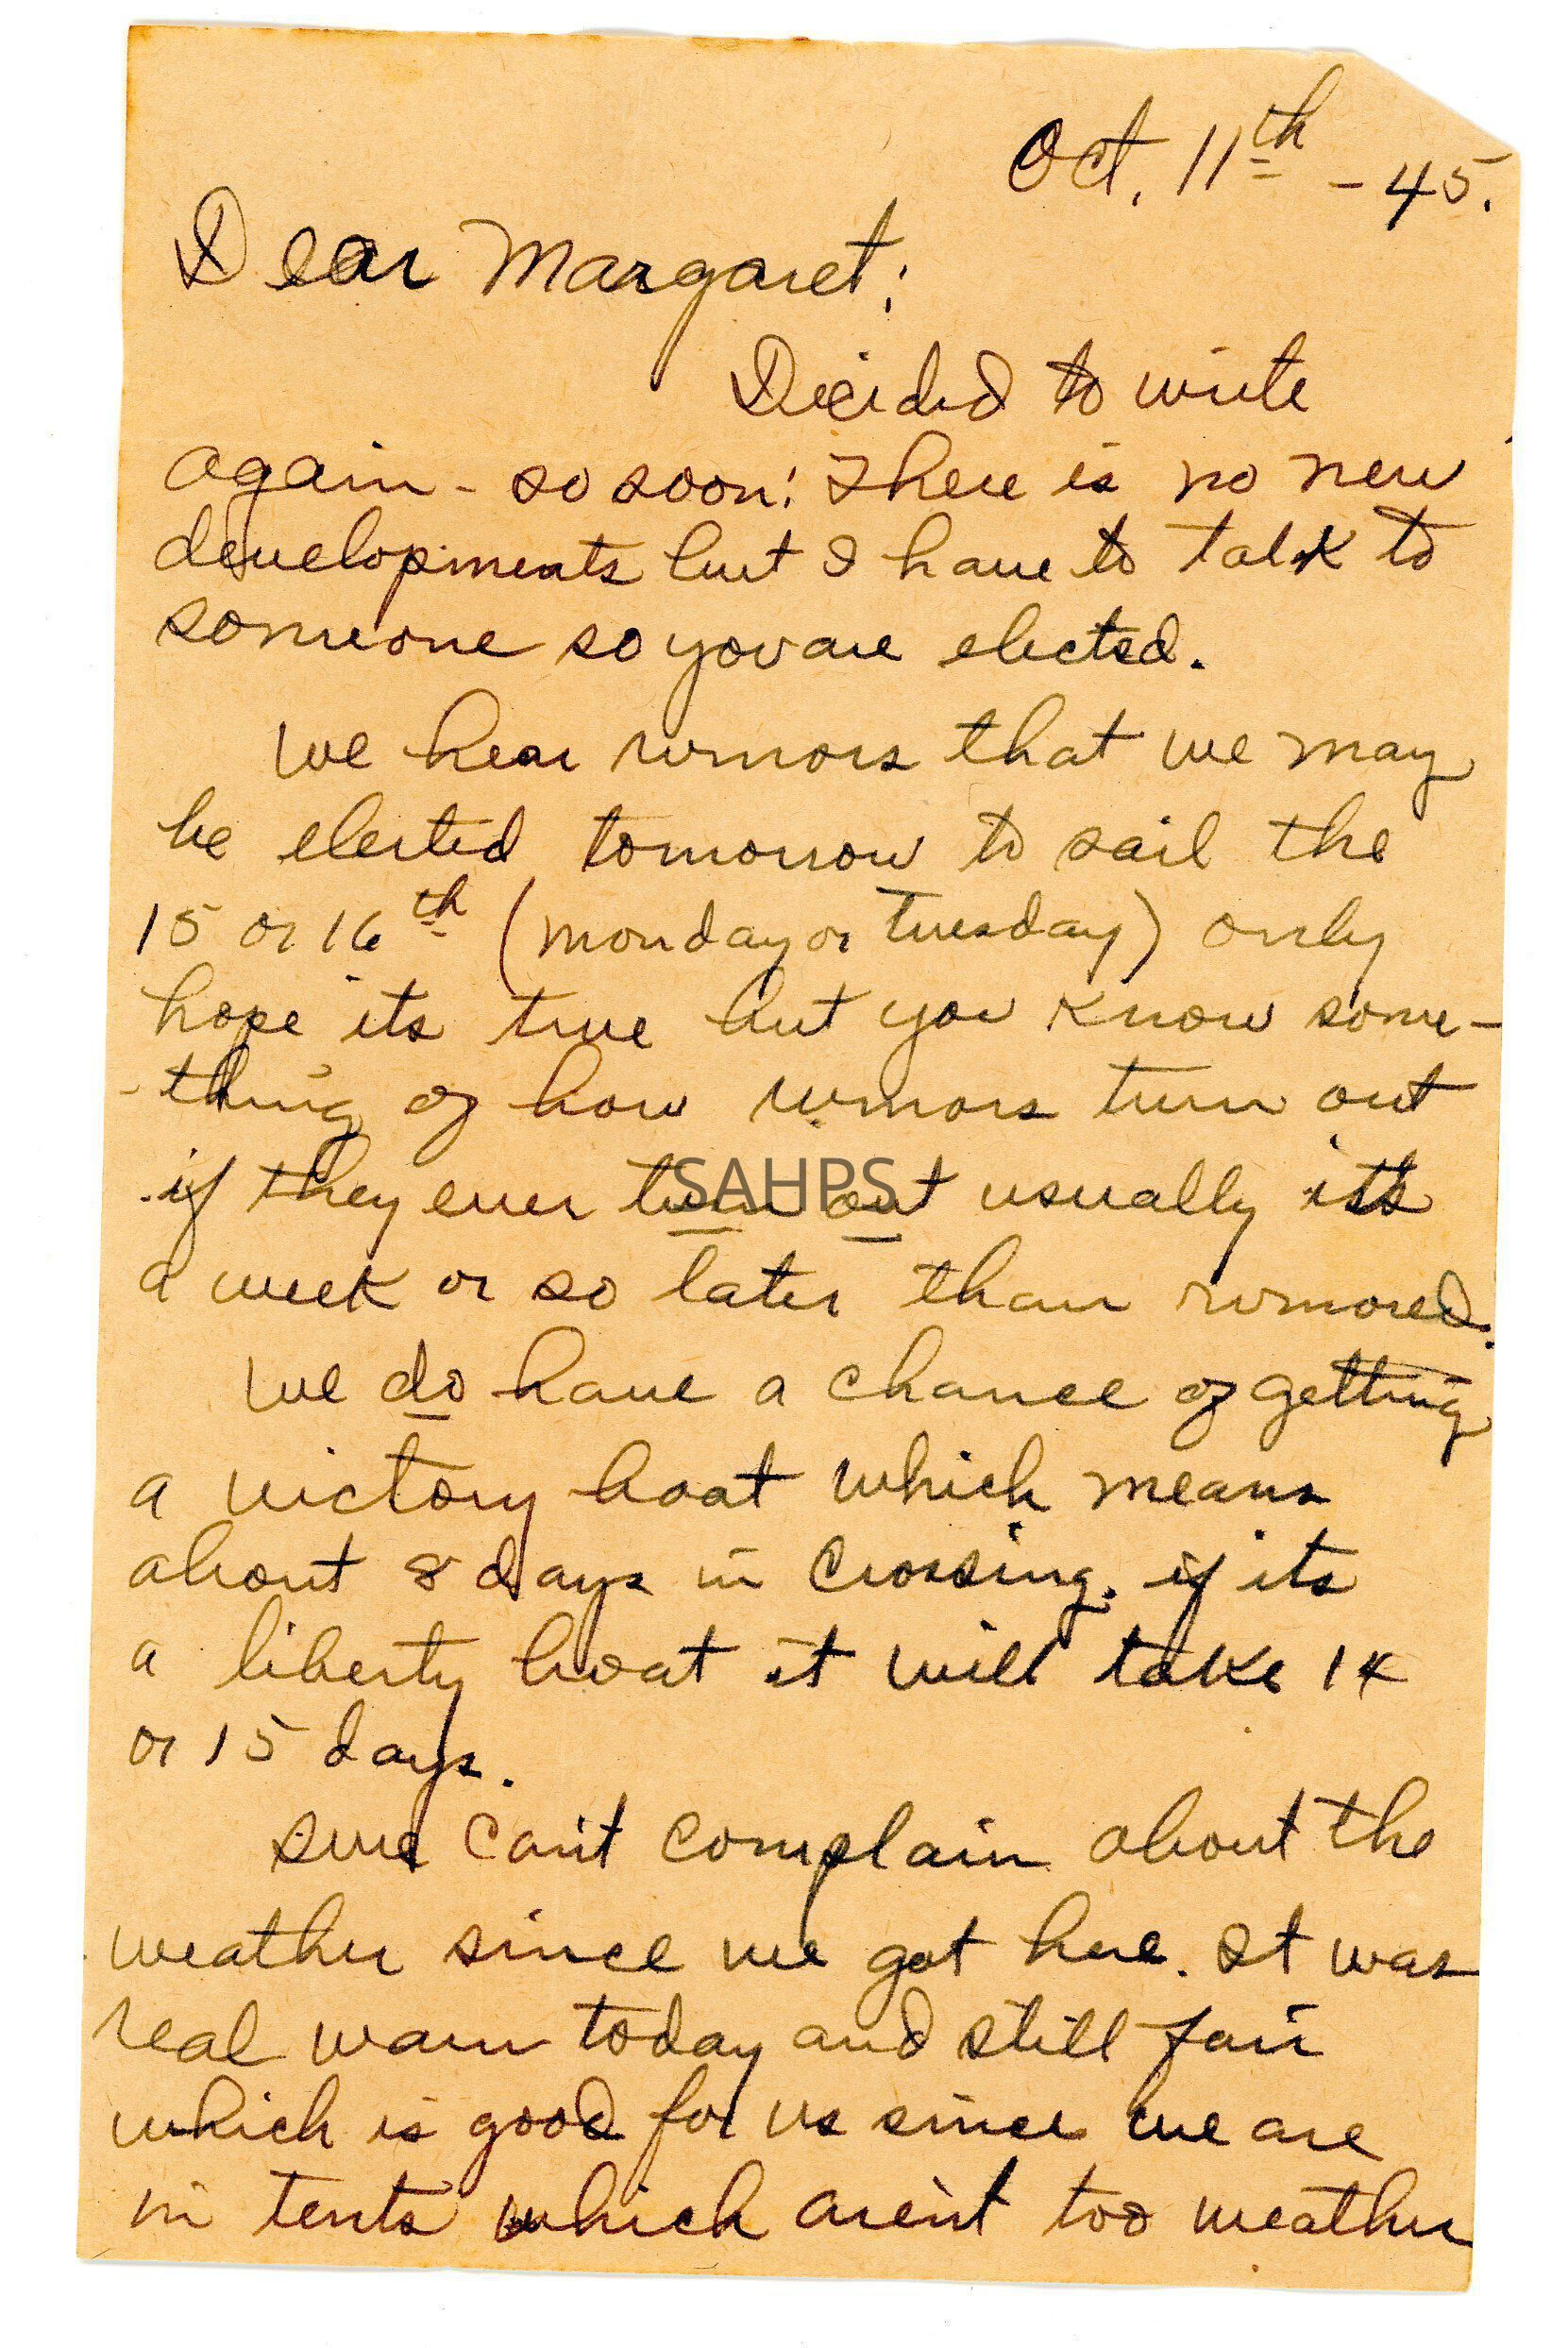 Oct. 11th - 45.
Dear Margaret:
Decided to write
again - so soon! There is no new
developments but I have to talk to
someone so you are elected.
We hear rumors that we may
be elected tomorrow to sail the
15 or 16th (Monday or Tuesday) only
hope its true but you know some-
-thing of how rumors turn out
if they ever turn out usually its
SAHPS
a week or so later than rumored.
We do have a chance of getting
a victory boat which means
about 8 days in crossing. if its
a liberty boat it will take 14
or 15 days.
Sure can't complain about the
weather since we got here. It was
real warm today and still fair
which is good for us since we are
in tents which aren't too weather